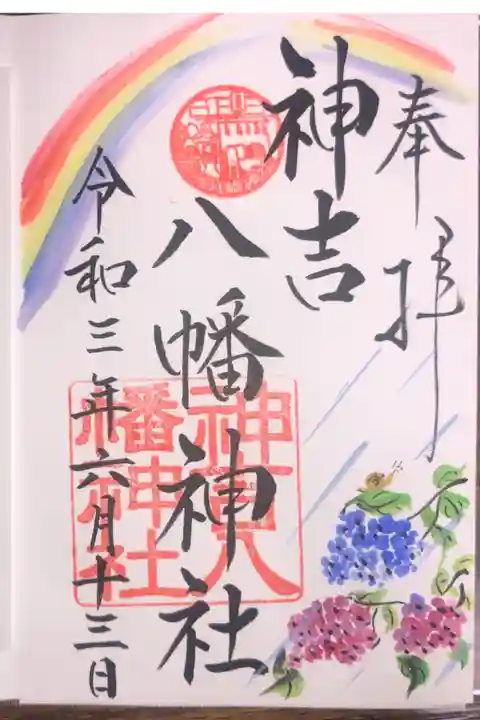 奉拝
神吉
八幡神社
令和三年六月十三日
神吉八
幡神社